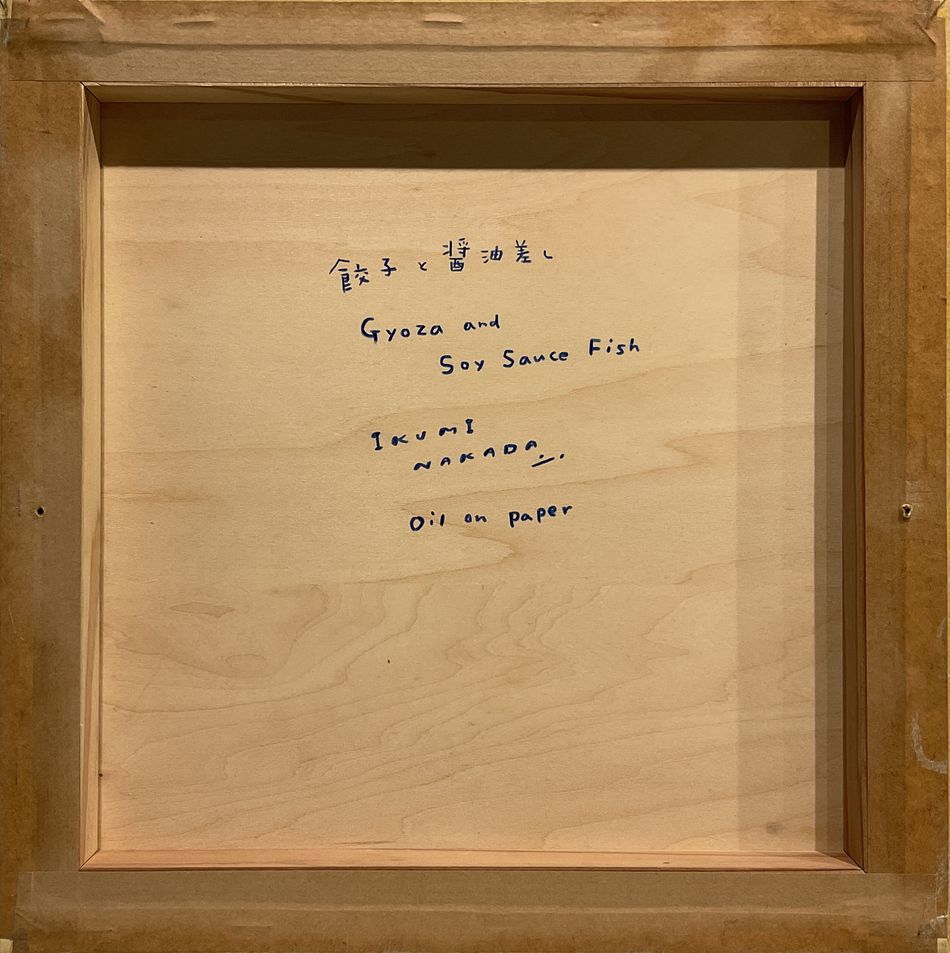 餃子と醤油差し
Gyoza and
Soy Sauce Fish
IKUMI
NAKADA
Oil on paper